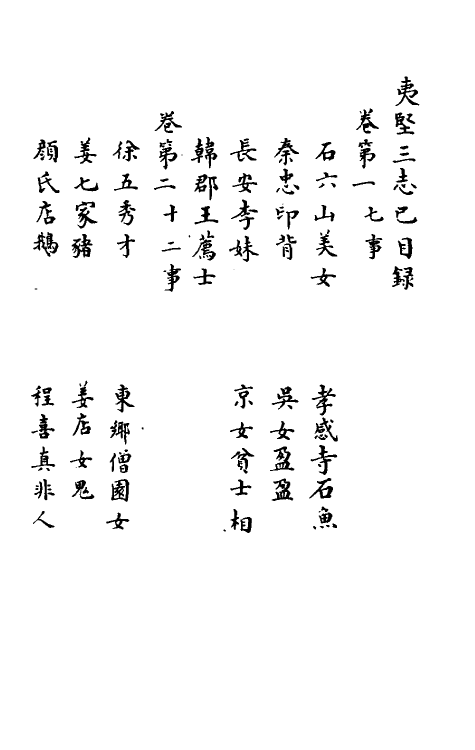 夷堅三志己目録
卷第一七事
石六山美女
孝感寺石魚
秦忠印背
吳女盈盈
長安李妹
京女貧士相
韓郡王薦士
卷第二十二事
徐五秀才
東鄉僧園女
姜七家豬
姜店女鬼
顏氏店鵝
程喜真非人